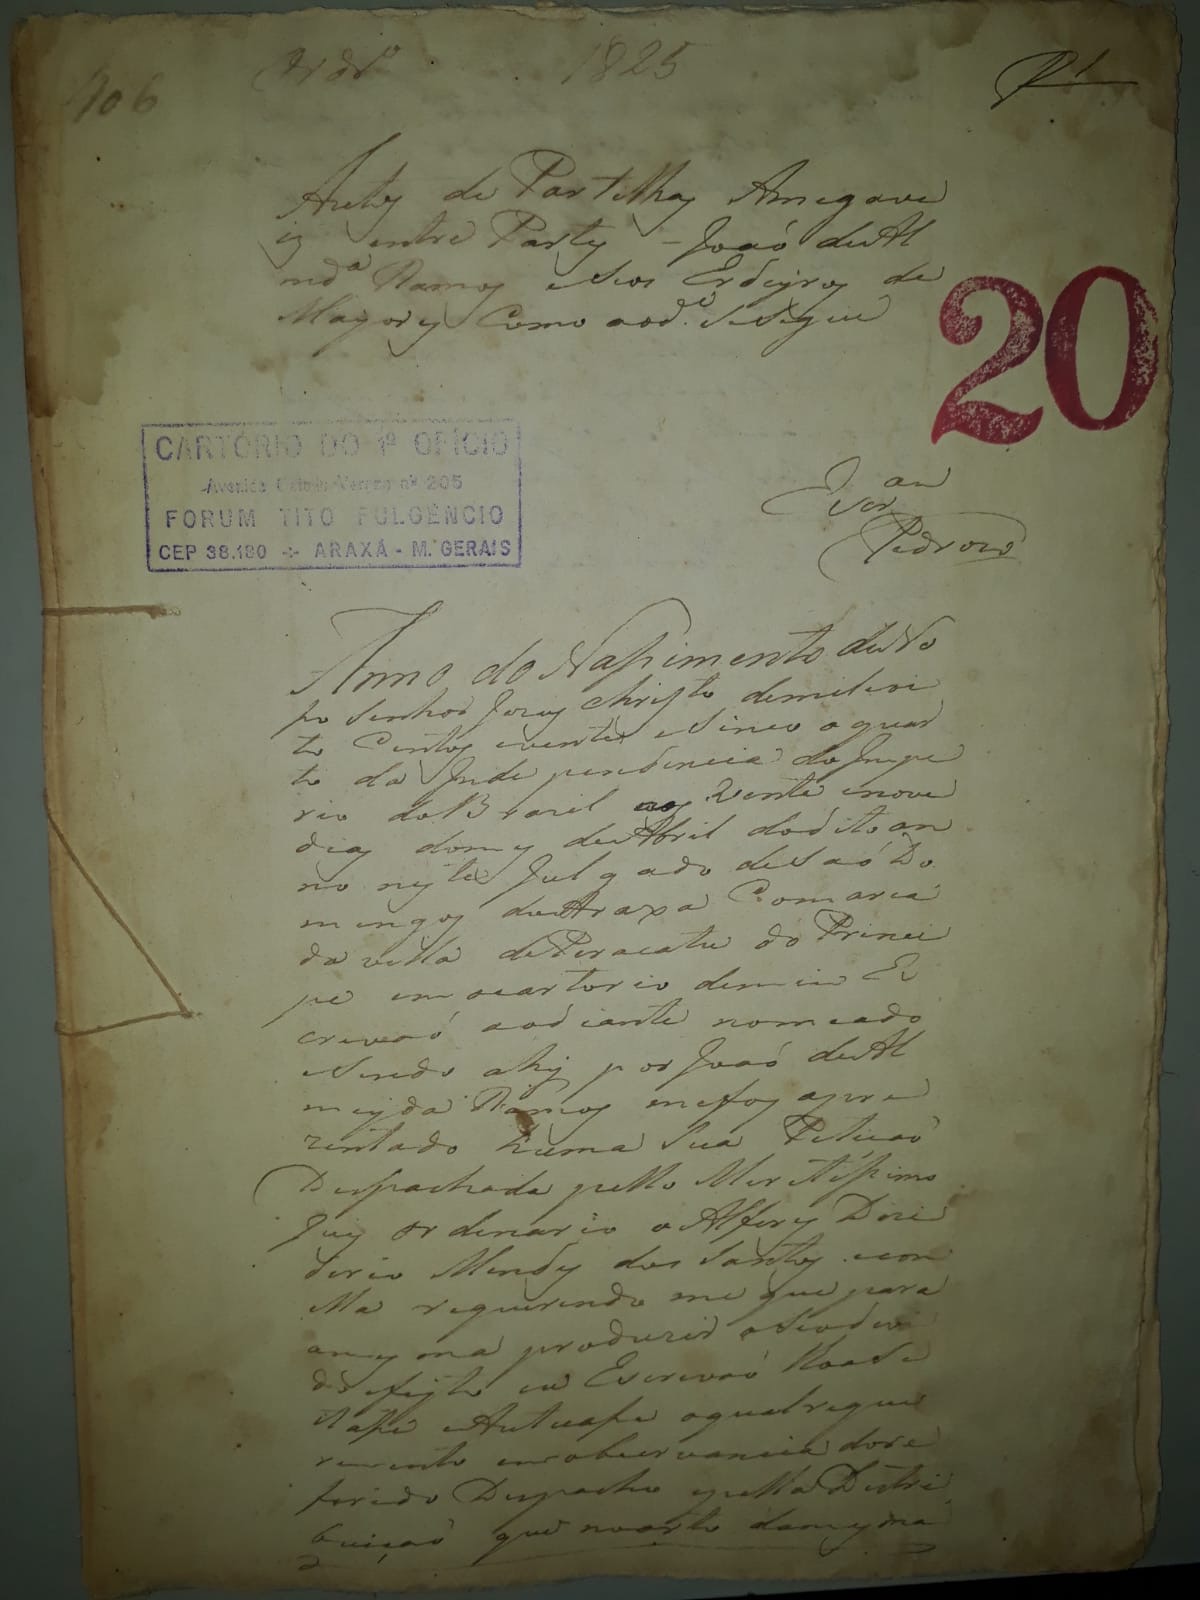 406
1825
R 1
Autos de Partilhas Amegave
is entre Partes - João de Al
mdª Ramos e Seos Erdeyros de
Mayores Como aodº. Se Segue
20
CARTÓRIO DO 1º OFÍCIO
Avenida nº 205
FORUM TITO FULGÊNCIO
CEP 38.180 -:- ARAXÁ - M. GERAIS
Escr.am
Pedrozo
Anno do Nassimento de No
so Senhor Jezus Christo de mil oi
to Centos e vente e Sinco o quar
to da Independencia do Impe
rio do Brazil aos Vente e nove
dias do mes de Abril do dito an
no neste Julgado de Saõ Do
mingos do Araxa Comarca
da villa de Peracatu do Princi
pe em o cartorio de mim Es
crevaõ aodiante nomeado
e Sendo ahy por Joaõ de Al
meyda Ramos me foy apre
zentado huma Sua Peticaõ
Despachada pello Meretissimo
Juiz ordenario o Alferes Dezi
derio Mendes dos Santos e com
ella requerendo me que para
a mesma produzir o Seo devi
do efeyto eu Escrevaõ Koase
tasse e Autuasse o qual reque
remento em observancia do re
ferido Despacho e pella Destri
buiçaõ que no alto da mesma